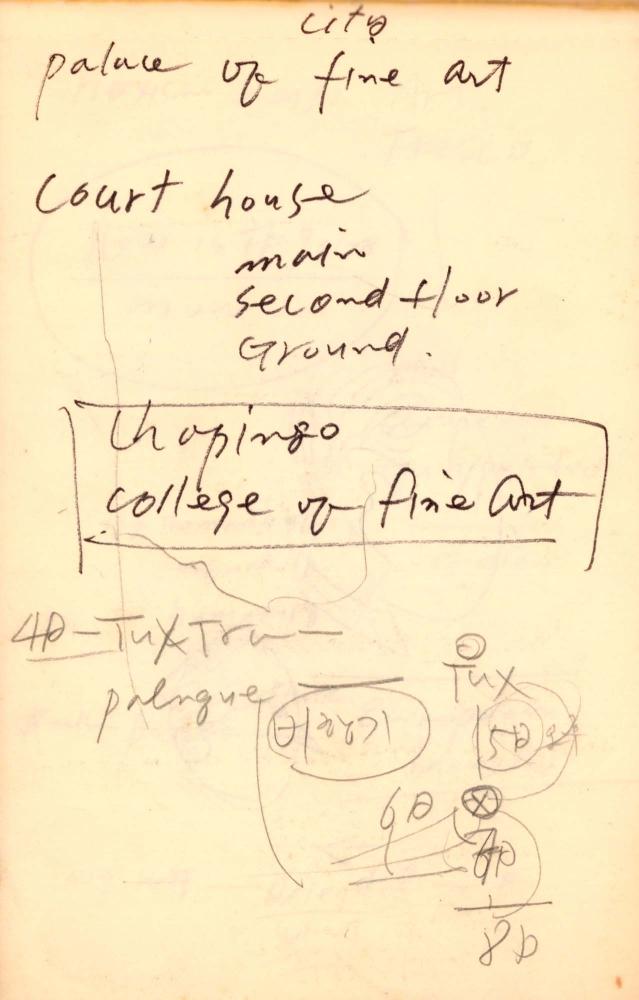 city
palace of fine art
Court house
main
second floor
Ground.
Chapingo
college of fine Art
4日-Tux Tra-
palnque
Tux
5日
6日
8日